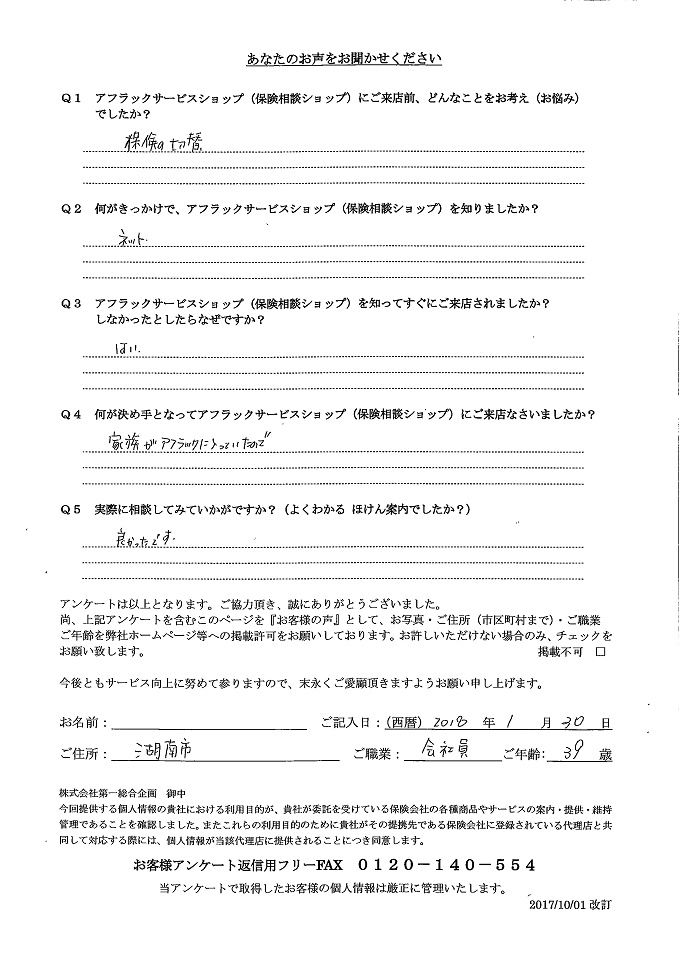 あなたのお声をお聞かせください
Q1 アフラックサービスショップ（保険相談ショップ）にご来店前、どんなことをお考え（お悩み）
でしたか？
の切替
Q2 何がきっかけで、アフラックサービスショップ（保険相談ショップ）を知りましたか？
ネット.
Q3 アフラックサービスショップ（保険相談ショップ）を知ってすぐにご来店されましたか？
しなかったとしたらなぜですか？
はい.
Q4 何が決め手となってアフラックサービスショップ（保険相談ショップ）にご来店なさいましたか？
家族がアフラックに入っていたので
Q5 実際に相談してみていかがですか？（よくわかる ほけん案内でしたか？）
良かったです.
アンケートは以上となります。ご協力頂き、誠にありがとうございました。
尚、上記アンケートを含むこのページを『お客様の声』として、お写真・ご住所（市区町村まで）・ご職業
ご年齢を弊社ホームページ等への掲載許可をお願いしております。お許しいただけない場合のみ、チェックを
お願い致します。 掲載不可 □
今後ともサービス向上に努めて参りますので、末永くご愛顧頂きますようお願い申し上げます。
お名前： ご記入日：（西暦）2018 年 1 月 30 日
ご住所： 湖南市 ご職業： 会社員 ご年齢： 39 歳
株式会社第一総合企画 御中
今回提供する個人情報の貴社における利用目的が、貴社が委託を受けている保険会社の各種商品やサービスの案内・提供・維持
管理であることを確認しました。またこれらの利用目的のために貴社がその提携先である保険会社に登録されている代理店と共
同して対応する際には、個人情報が当該代理店に提供されることにつき同意します。
お客様アンケート返信用フリーFAX 0120－140－554
当アンケートで取得したお客様の個人情報は厳正に管理いたします。
2017/10/01 改訂